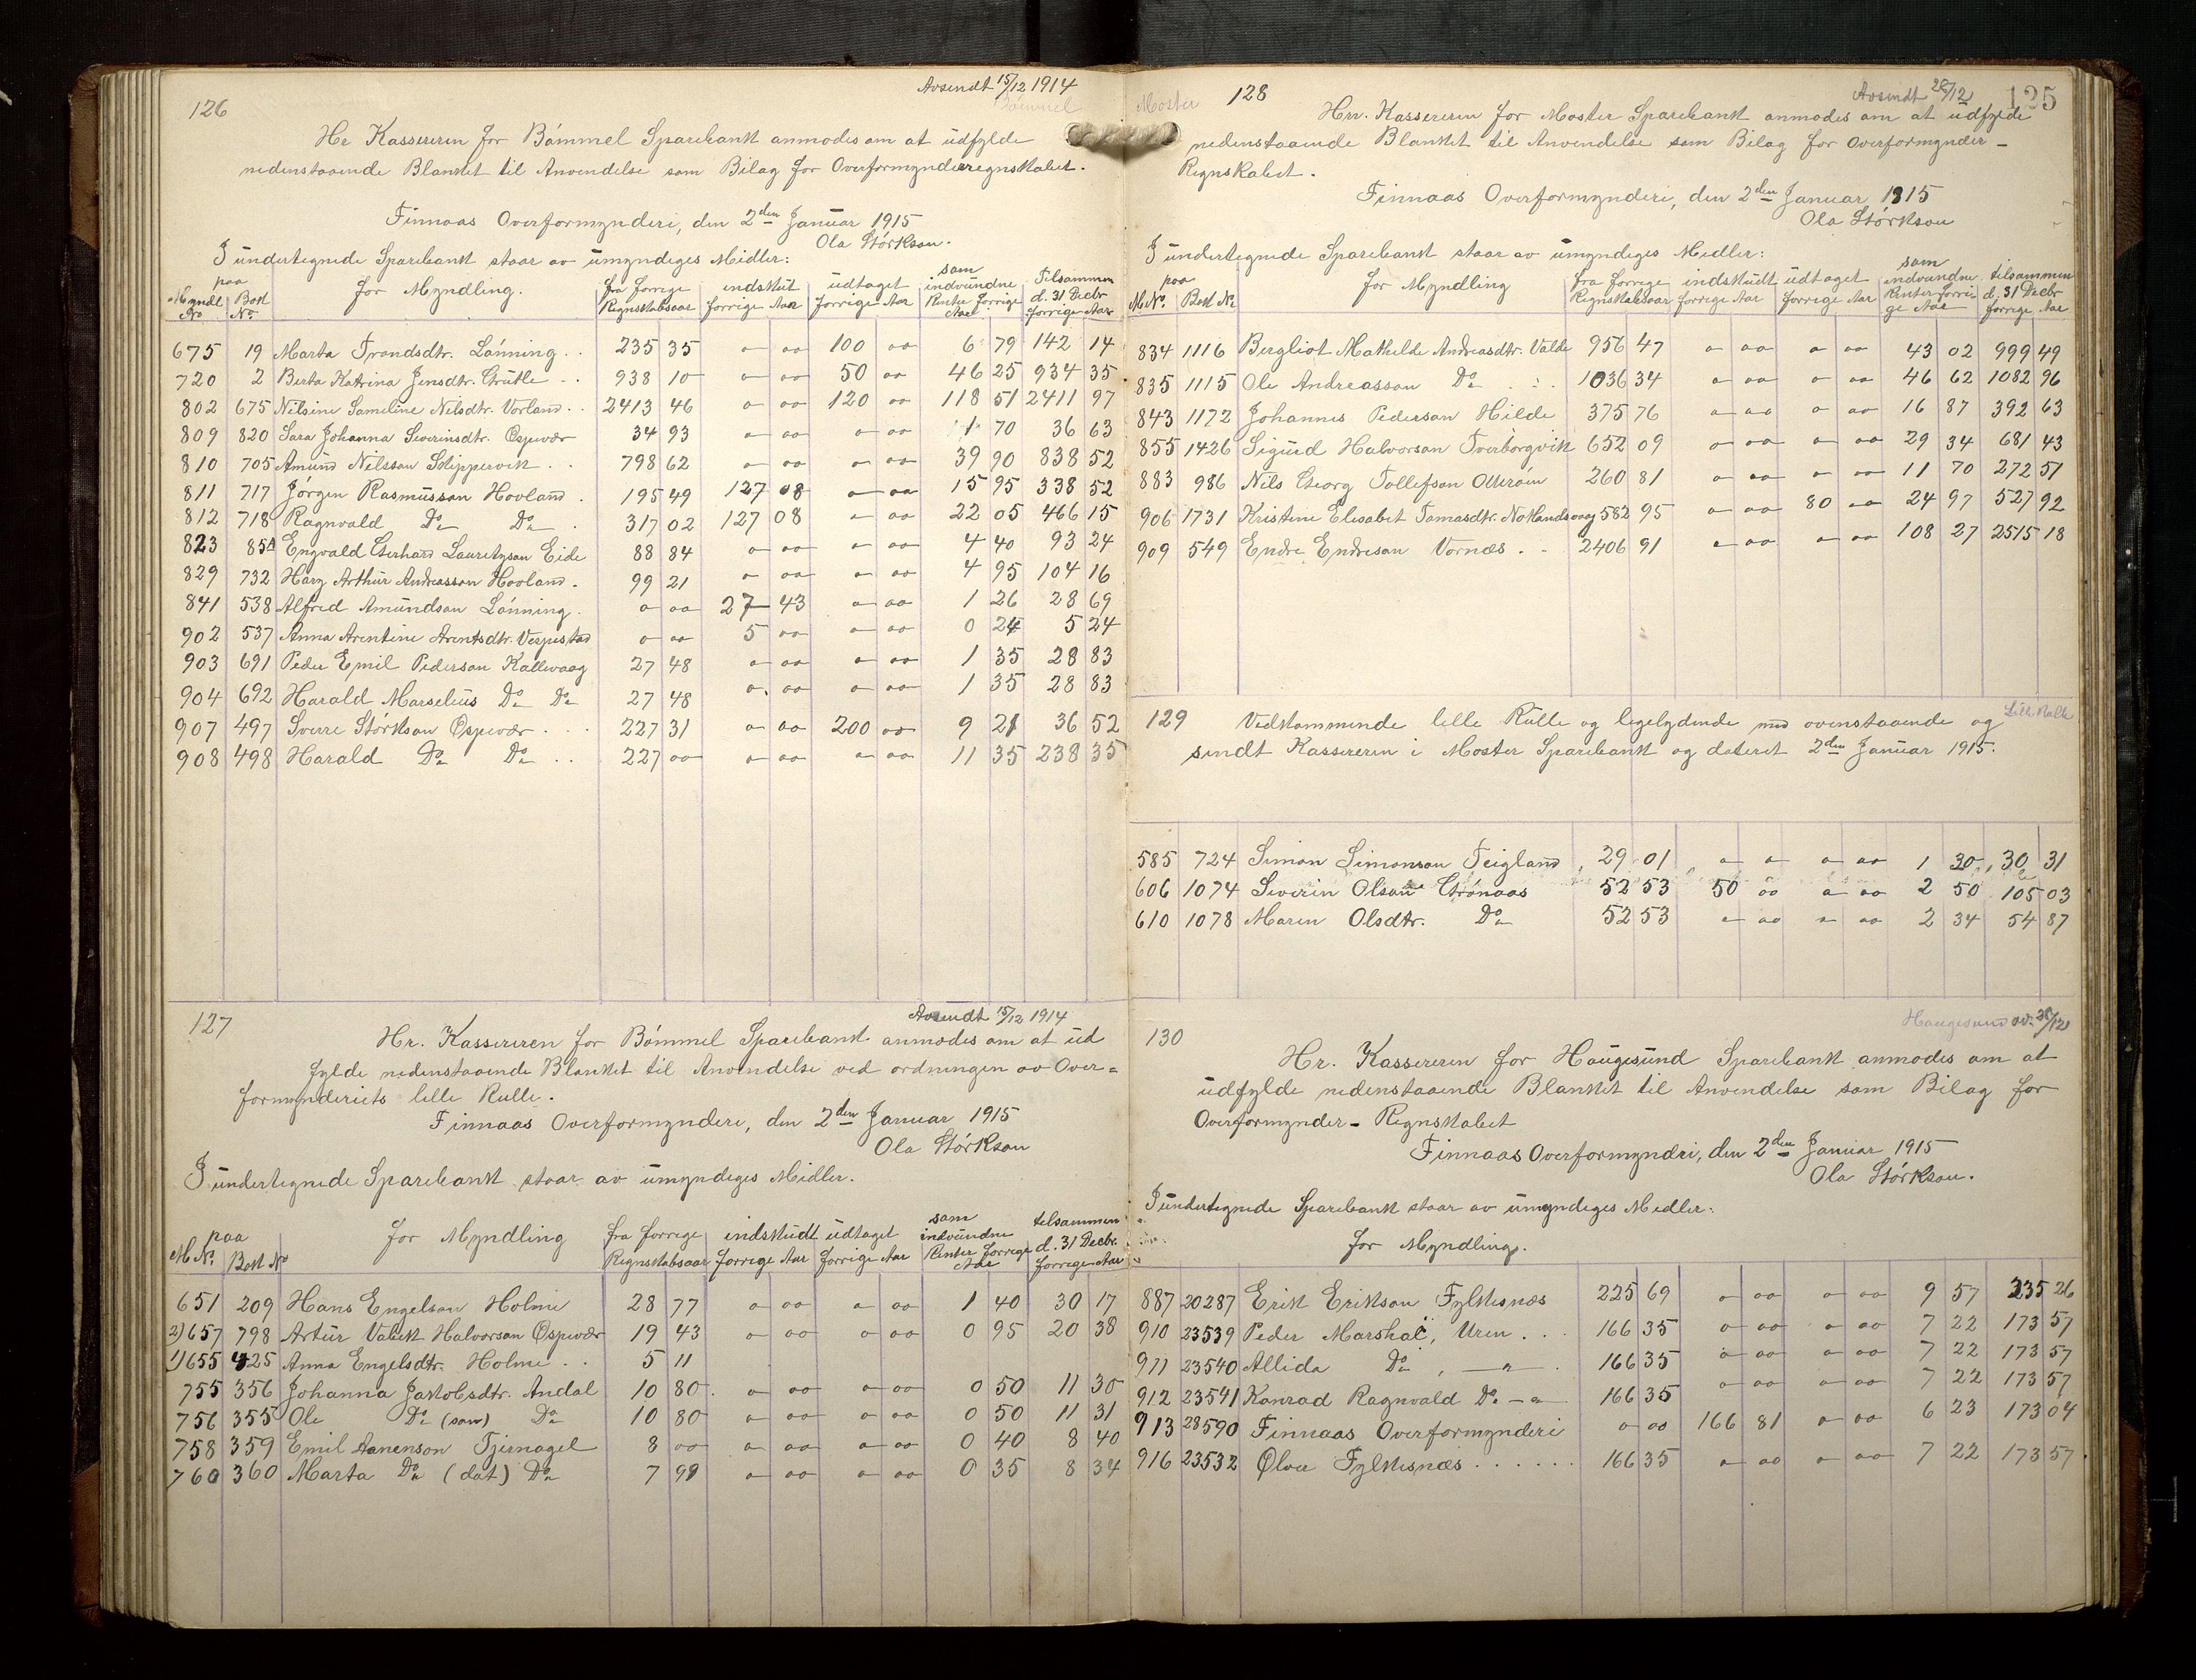 Avsendt 15/12 1914
126
Bømmel
Hr Kassereren for Bømmel Sparebank anmodes om at udfylde
nedenstaaende Blanket til Anvendelse som Bilag for Overformynderregnskabet.
Finnaas Overformynderi, den 2den Januar 1915
Ola Størkson.
I undertegnede Sparebank staar av umyndiges Midler:
paa Myndl No Bok No for Myndling. fra forrige Regnskabsaar indskut forrige Aar udtaget forrige Aar som indvundne Renter forrige Aar Tilsammen d. 31 Decbr forrige Aar
675 19 Marta Trondsdtr. Lønning . . 235 35 o oo 100 oo 6 79 142 14
720 2 Berta Katrina Jensdtr. Grutle . . 938 10 o oo 50 oo 46 25 934 35
802 675 Nilsine Sameline Nilsdtr. Vorland . . 2413 46 o oo 120 oo 118 51 2411 97
809 820 Sara Johanna Severinsdtr. Espevær 34 93 o oo o oo 1 70 36 63
810 705 Amund Nilsson Skippervik . . 798 62 o oo o oo 39 90 838 52
811 717 Jørgen Rasmusson Hovland . 195 49 127 08 o oo 15 95 338 52
812 718 Ragnvald Do Do . 317 02 127 08 o oo 22 05 466 15
823 851 Engvald Gerhard Lauritzson Eide 88 84 o oo o oo 4 40 93 24
829 732 Harz Arthur Andreasson Hovland . 99 21 o oo o oo 4 95 104 16
841 538 Alfred Amundson Lønning . o oo 27 43 o oo 1 26 28 69
902 537 Anna Arentine Arentsdtr. Vespestad o oo 5 oo o oo 0 24 5 24
903 691 Peder Emil Pederson Kallevaag 27 48 o oo o oo 1 35 28 83
904 692 Harald Marselius Do Do 27 48 o oo o oo 1 35 28 83
907 497 Sverre Størkson Espevær . . . 227 31 o oo 200 oo 9 21 36 52
908 498 Harald Do Do . . 227 oo o oo o oo 11 35 238 35
127
Avsendt 15/12 1914
Hr. Kassereren for Bømmel Sparebank anmodes om at ud
fylde nedenstaaende Blanket til Anvendelse ved ordningen av Over=
formynderiets lille Rulle.
Finnaas Overformynderi, den 2den Januar 1915
Ola Størkson
I undertegnede Sparebank staar av umyndiges Midler.
paa M No. Bok No for Myndling fra forrige Regnskabsaar indskudt forrige Aar udtaget forrige Aar som indvundne Renter forrige Aar tilsammen d. 31 Decbr. forrige Aar
651 209 Hans Engelson Holme 28 77 o oo o oo 1 40 30 17
2) 657 798 Artur Valek Halvorson Espevær 19 43 o oo o oo 0 95 20 38
1) 655 425 Anna Engelsdtr. Holme . . 5 11
755 356 Johanna Jakobsdtr. Andal 10 80 . o oo o oo 0 50 11 30
756 355 Ole Do (søn) Do 10 80 o oo o oo 0 50 11 31
758 359 Emil Aanenson Tjernagel 8 oo o oo o oo 0 40 8 40
760 360 Marta Do (dat) Do 7 99 o oo o oo 0 35 8 34
Moster 128
Avsendt 28/12
125
Hrr. Kassereren for Moster Sparebank anmodes om at udfylde
nedenstaaende Blanket til Anvendelse som Bilag for Overformynder -
Regnskabet.
Finnaas Overformynderi, den 2den Januar 1915
Ola Størkson
I undertegnede Sparebank staar av umyndiges Medler:
paa M No. Bok No for Myndling fra forrige Regnskabsaar indskudt forrige Aar udtaget forrige Aar som indvundne Renter forrige Aar tilsammen d. 31 Decbr forrige Aar
834 1116 Bergliot Mathilde Andreasdtr. Valde 956 47 o oo o oo 43 02 999 49
835 1115 Ole Andreasson Do . . 1036 34 o oo o oo 46 62 1082 96
843 1172 Johannes Pederson Hilde 375 76 o oo o oo 16 87 392 63
855 1426 Sigurd Halvorson Tverborgvik 652 09 o oo o oo 29 34 681 43
883 986 Nils Georg Tollefson 260 81 o oo o oo 11 70 272 51
906 1731 Kristine Elisabet Tomasdtr. Notlandsvaag 582 95 o oo 80 oo 24 97 527 92
909 549 Endre Endreson Vornæs . . 2406 91 o oo o oo 108 27 2515 18
129
Lille Rulle
Vedkommende lille Rulle og ligelydende med ovenstaaende og
sendt Kassereren i Moster Sparebank og dateret 2den Januar 1915.
585 724 Simon Simonson Teigland 29 01 o o o oo 1 30 30 31
606 1074 Severin Olson Grønaas 52 53 50 oo o oo 2 50 105 03
610 1078 Maren Olsdtr. Do 52 53 o oo o oo 2 34 54 87
130
Haugesund av. 28/12
Hr. Kassereren for Haugesund Sparebank anmodes om at
udfylde nedenstaaende Blanket til Anvendelse som Bilag for
Overformynder - Regnskabet
Finnaas Overformyndri, den 2den Januar 1915
Ola Størkson.
I undertegnede Sparebank staar av umyndiges Medler:
for Myndling.
887 20287 Erik Erikson Fylkesnæs 225 69 o oo o oo 9 57 235 26
910 23539 Peder Marshal, Uren . . . 166 35 o oo o oo 7 22 173 57
911 23540 Allida Do , — " — . 166 35 o oo o oo 7 22 173 57
912 23541 Konrad Ragnvald Do — " — 166 35 o oo o oo 7 22 173 57
913 28590 Finnaas Overformynderi o oo 166 81 o oo 6 23 173 04
916 23532 Ølver Fylkesnæs . . . . . . 166 35 o oo o oo 7 22 173 57